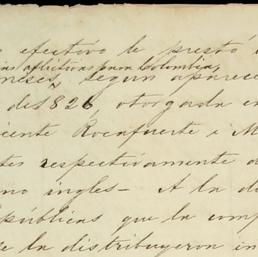 efectivo le prestó
aflictivas para Colombia,
meses, segun aparece
de 1826, otorgada en
icente Rocafuerte i M
tes respectivamente d
no ingles— A la d
públicas que la comp
e la distribuyeron in